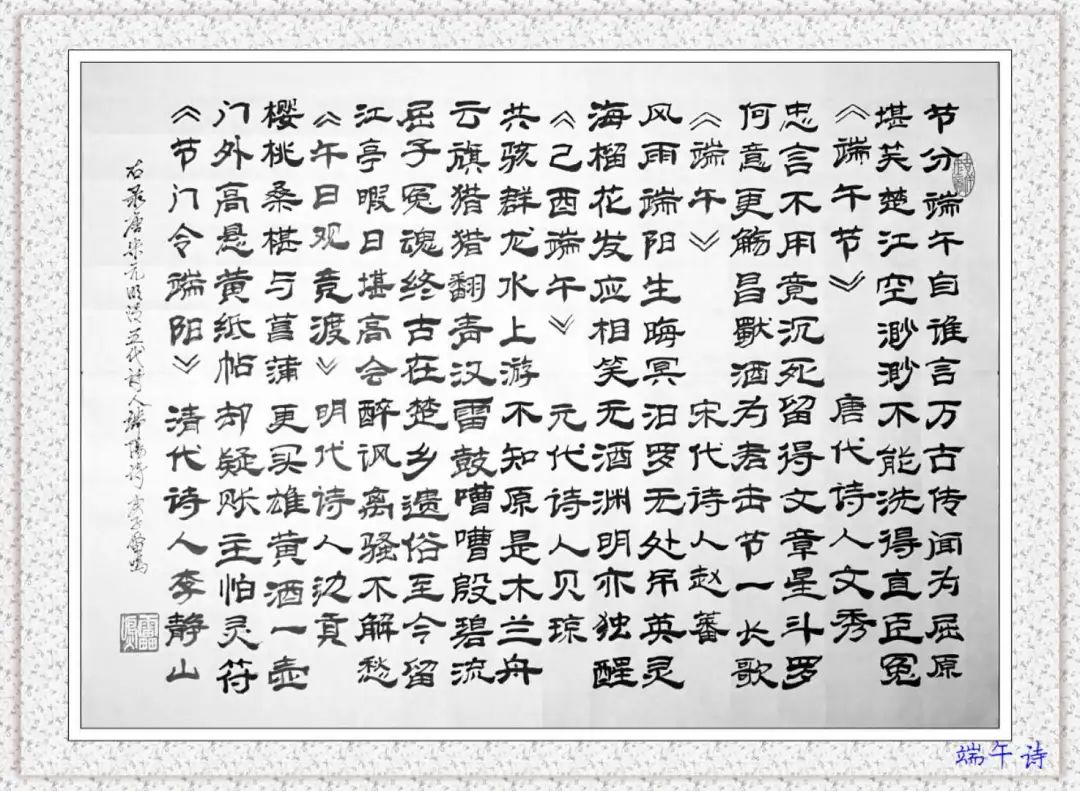 节分端午自谁言万古传闻为屈原
堪笑楚江空渺渺不能洗得直臣冤
《端午节》 唐代诗人文秀
忠言不用竟沉死留得文章星斗罗
何意更觞昌獸酒为君击节一长歌
《端午》 宋代诗人赵蕃
风雨端阳生晦冥汨罗无处吊英灵
海榴花发应相笑无酒渊明亦独醒
《己酉端午》 元代诗人贝琼
共骇群龙水上游不知原是木兰舟
云旗猎猎翻青汉雷鼓嘈嘈殷碧流
屈子冤魂终古在楚乡遗俗至今留
江亭暇日堪高会醉讽离骚不解愁
《午日观竞渡》 明代诗人边贡
樱桃桑椹与菖蒲 更买雄黄酒一壶
门外高悬黄纸帖 却疑账主怕灵符
《节门令端阳》 清代诗人李静山
右录唐宋元明清五代诗人端阳诗
端午诗